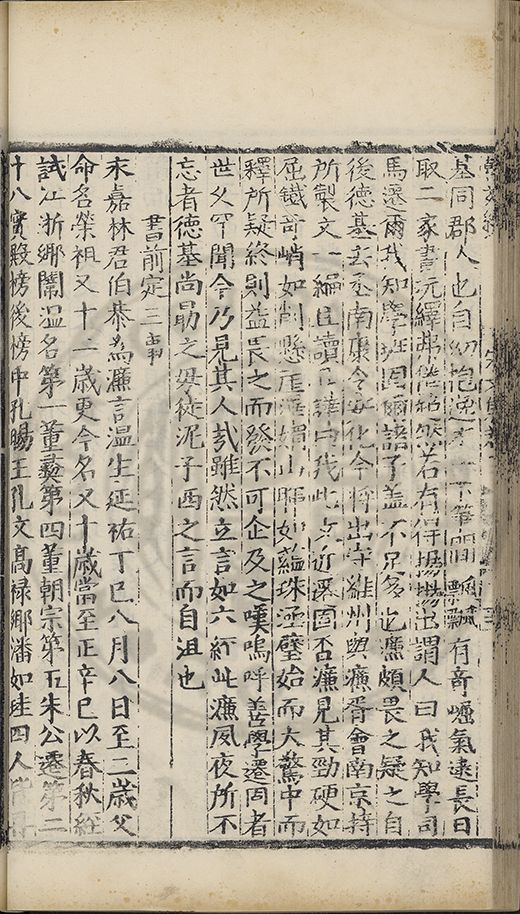 基同郡人也自幼抱逸下筆間飄飄有奇崛氣逮長日
取二家書玩繹弗倦若有得揚揚語謂人曰我知學司
馬遷爾我知學班固爾諸子蓋不足多也濂頗畏之疑之自
後德基丞南康令安化今將出守雄州與濂胥會南京持
所製文一編且讀且謂曰我此文近遷固否濂見其勁硬如
屈鐵奇峭如削懸崖媚如蘊珠涵璧始而大驚中而
釋所疑終則益畏之而發不可企及之嘆嗚呼善學遷固者
世久罕聞今乃見其人哉雖然立言如六經此濂夙夜所不
忘者德基尚勗之毋徒泥子西之言而自沮也
書前定三事
永嘉林君伯恭為濂言溫生延祐丁巳八月八日至二歲父
命名榮祖又十二歲更今名又十歲當至正辛巳以春秋經
試江浙鄉闈溫名第一董彝第四董朝宗第五朱公遷第二
十八實殿榜後榜中孔暘王孔文高祿鄉潘如珪四人